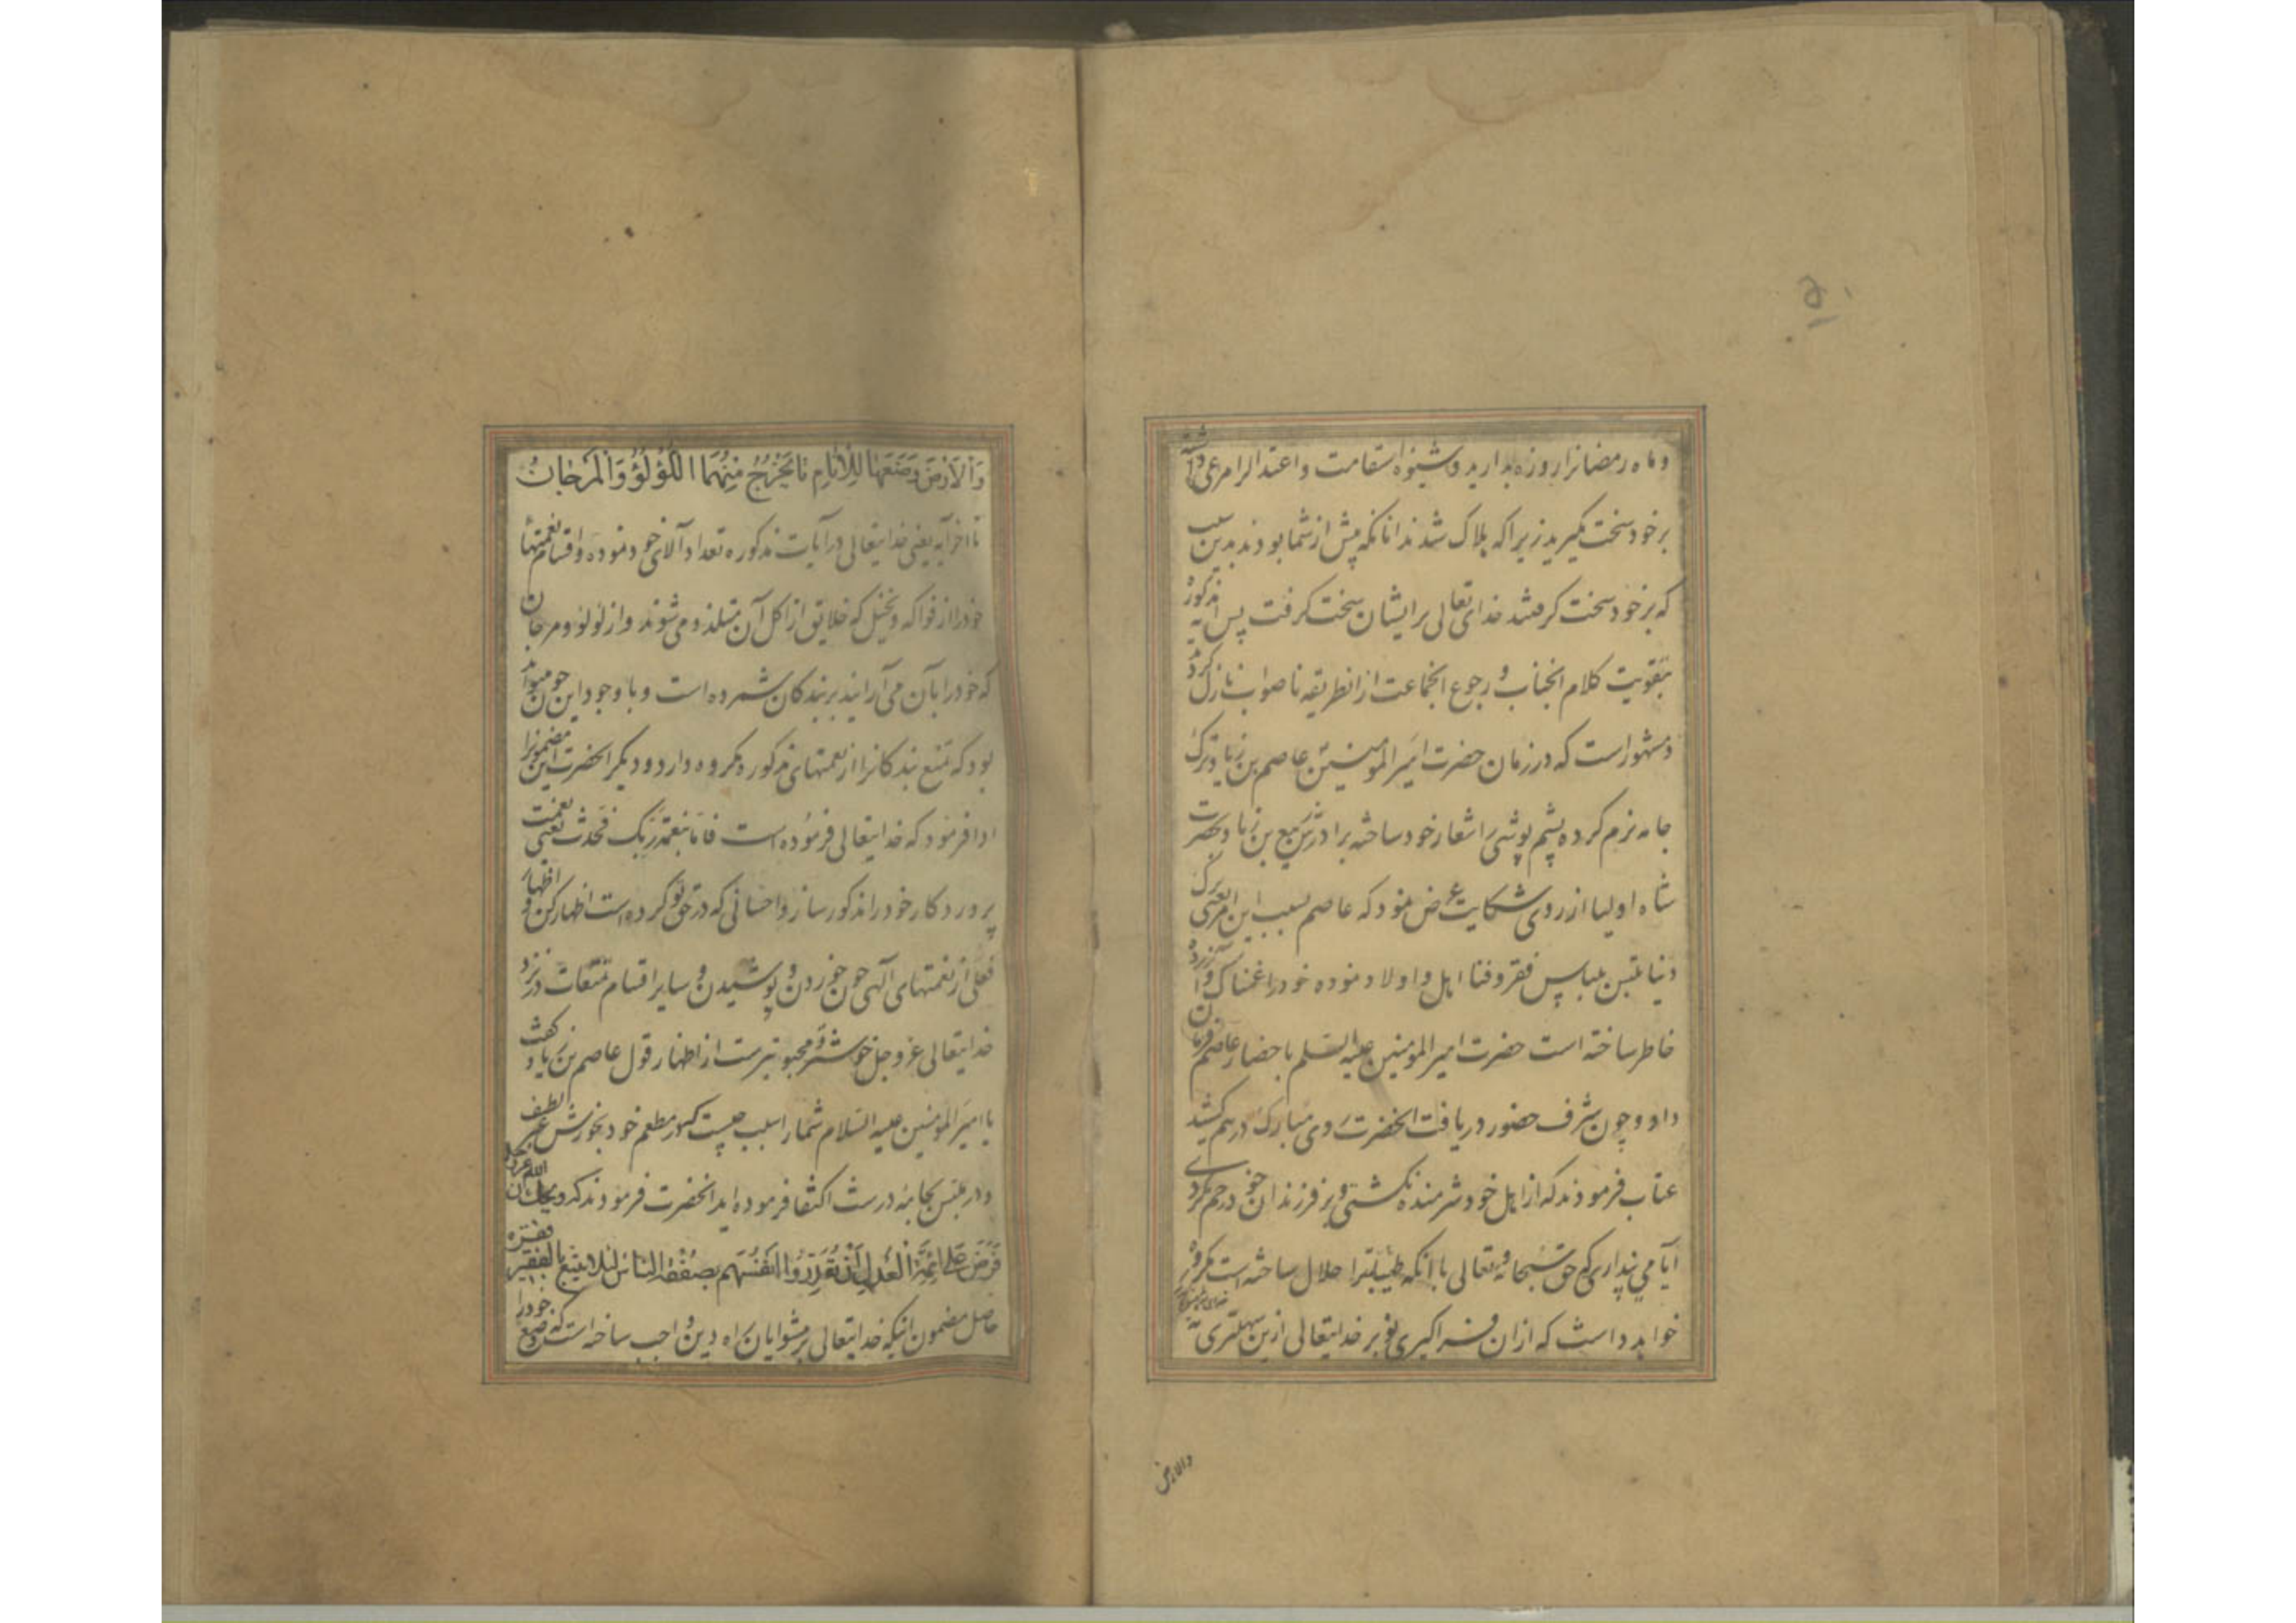 ۵۰
و ماه رمضانرا روزه بدارید و شیوه استقامت و اعتدالرا مرعی داشته
برخود سخت مگیرید زیرا که هلاک شدند انانکه پیش از شما بودند بدین سبب
که برخود سخت گرفتند خدای تعالی برایشان سخت گرفت پس آیه مذکوره
بتقویت کلام انجناب و رجوع انجماعت از انطریقه ناصواب نازل کردید
و مشهور است که در زمان حضرت امیر المومنین عاصم بن زیاد ترک
جامه نرم کرده پشم پوشی را شعار خود ساخته برادرش ربیع بن زیاد بحضرت
شاه اولیا از روی شکایت عرض نمود که عاصم بسبب این معنی ترک
دنیا بتلبس بلباس فقر و فنا اهل و اولاد نموده خود را غمناک و ازرده
خاطر ساخته است حضرت امیر المومنین علیه السلم باحضار عاصم فرمان
داد و چون شرف حضور دریافت انحضرت روی مبارک درهم کشید
عتاب فرمودند که از اهل خود شرمنده نکشتی و بر فرزندان خود رحم نکردی
آیا می پنداری که حق سبحانه و تعالی با انکه طیباترا حلال ساخته است مکروه
خواهد داشت که ازان فراکیری تو بر خدایتعالی ازین سهلتری
والارض
وَالْاَرْضَ وَضَعَهَا لِلْاَنَامِ تا یَخْرُجُ مِنْهُمَا اللُّؤْلُؤُ وَالْمَرْجَانُ
تا اخر آیه یعنی خدایتعالی در آیات مذکوره تعداد آلای خود نموده و اقسام نعمتها
خود را از فواکه و نخیل که خلایق از اکل آن متلذذ می شوند و از لؤلؤ و مرجان
که خود را بآن می آرایند بر بندکان شمرده است و با وجود این چون میتواند
بود که تمتع بندکانرا از نعمتهای مذکوره مکروه دارد و دیکر انحضرت این مضمونرا
ادا فرمود که خدایتعالی فرموده است فاما بنعمة ربک فحدث یعنی نعمت
پروردکار خود را مذکور ساز و احسانی که در حق تو کرده است اظهار کن و اظهار
فعلی از نعمتهای آلهی چون خوردن و پوشیدن و سایر اقسام تمتعات در نزد
خدایتعالی عز و جل خوشتر و محبوبترست از اظهار قول عاصم بن زیاد کفت
یا امیر المومنین علیه السلام شما را سبب چیست که در مطعم خود بخورش غیر لطیف
و در تلبس بجامه درشت اکتفا فرموده اید انحضرت فرمودند که ویحک ان الله عز و جل
فَرَضَ عَلی ائِمَّةِ الْعَدلِ اَنْ یُقَدِّرُوا اَنْفُسَهُم بضعفة الناس لئلا یتبیغ بالفقیر فقره
حاصل مضمون انیکه خدایتعالی بر پیشوایان راه دین واجب ساخته است که وضع خود را